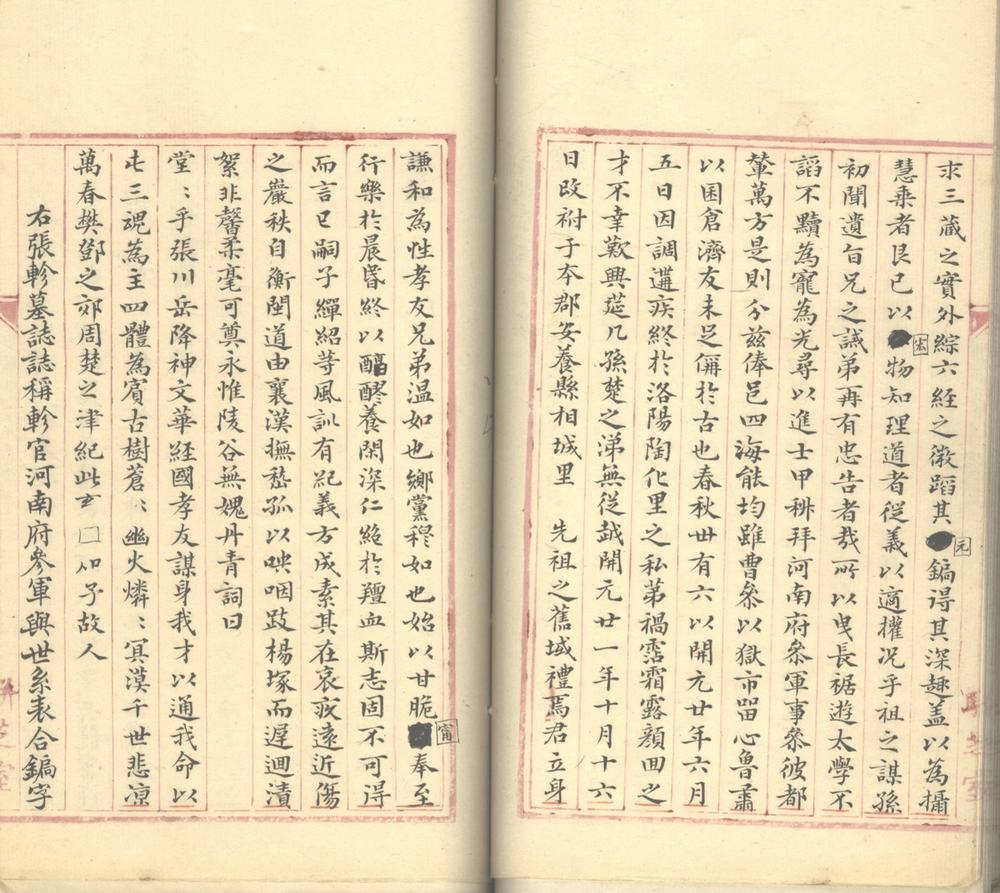 求三藏之實外綜六経之微蹈其元鎬得其深趣盖以為攝
慧乘者艮已以宏物知理道者従義以適權况乎祖之謀孫
初聞遺旨兄之誡弟再有忠告者㦲所以曳長裾遊太學不
謟不黷為寵為光尋以進士甲科拜河南府叅軍事叅彼都
輦萬方是則分兹俸邑四海能均雖曹叅以獄市畱心魯肅
以囷倉濟友未足儔於古也春秋丗有六以開元廿年六月
五日因調遘疾終於洛陽陶化里之私第禍霑霜露顔回之
才不幸歎興莚几孫楚之涕無従越開元廿一年十月十六
日改祔于夲郡安養縣相城里 先祖之舊域禮焉君立身
謙和為性孝友兄弟温如也鄉黨穆如也始以甘脆甯奉至
行樂於晨昏終以醍醪養閑深仁絶於羶血斯志固不可得
而言已嗣子繟紹等風訓有紀義方成素其在哀疚遠近傷
之嚴秩自衡閨道由襄漢撫嵆孤以咉咽跂楊塚而遲迴漬
絮非馨柔毫可奠永惟陵谷無媿丹青詞曰
堂〻乎張川岳降神文華経國孝友謀身我才以通我命以
屯三魂為主四體為賓古樹蒼〻幽火燐〻冥漠千世悲凉
萬春樊鄧之郊周楚之津紀此 □ 予故人
右張軫墓誌誌稱軫官河南府參軍與世系表合鎬字